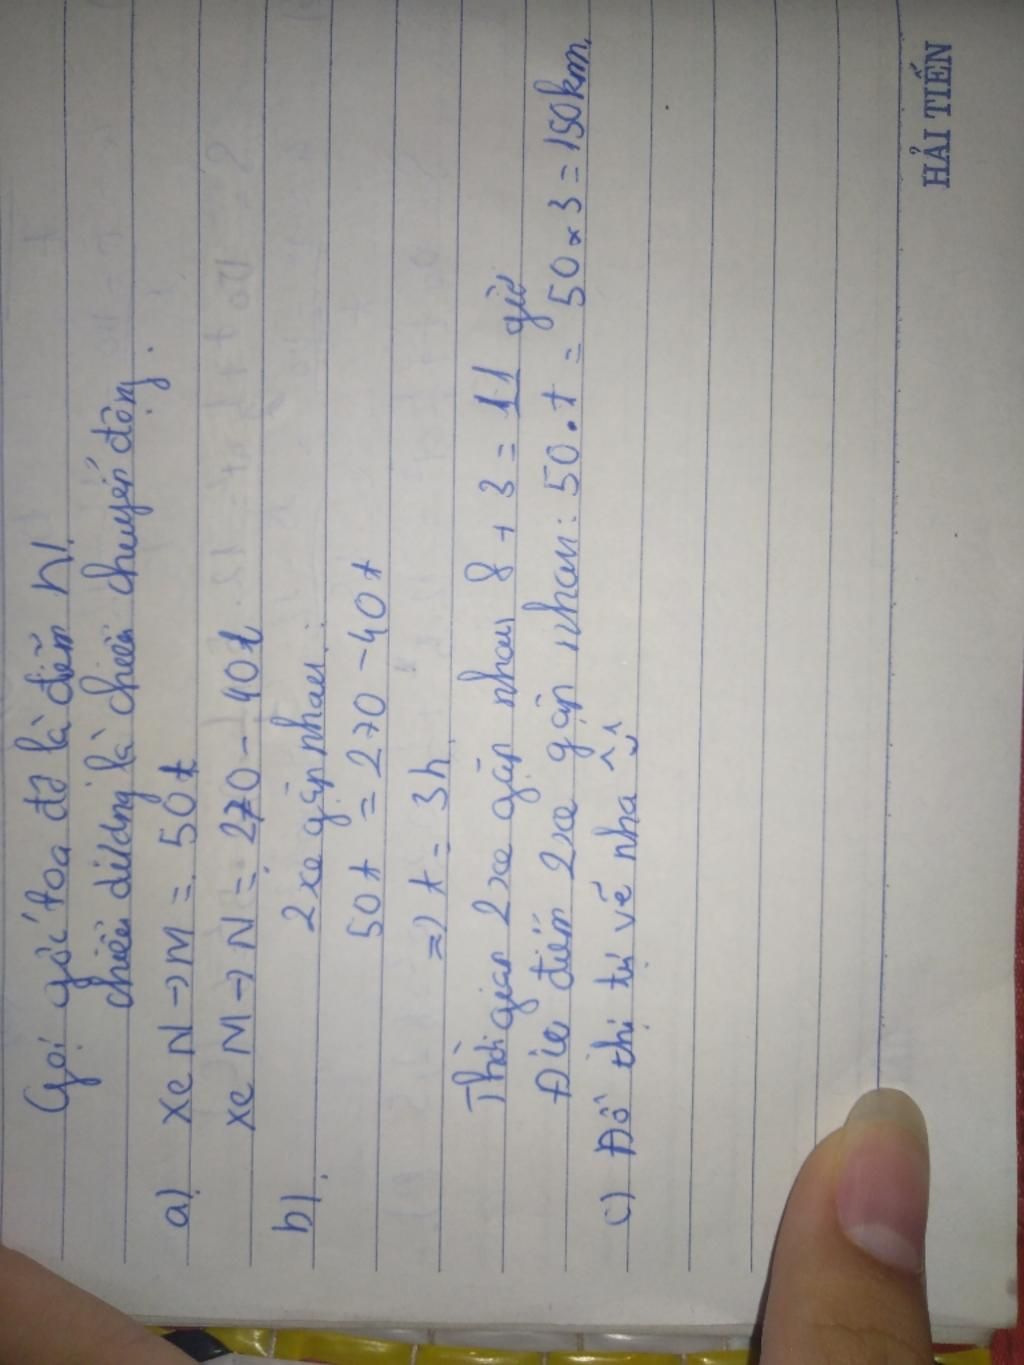 Gọi gốc tọa độ là điểm N.
chiều dương là chiều chuyển động.
a). xe N → M = 50t
xe M → N = 270 - 40t
b). 2 xe gặp nhau:
50t = 270 - 40t
=> t = 3h
Thời gian 2 xe gặp nhau 8 + 3 = 11 giờ
Địa điểm 2 xe gặp nhau: 50.t = 50 x 3 = 150km.
c) Đồ thị tự vẽ nha ^^
HẢI TIẾN